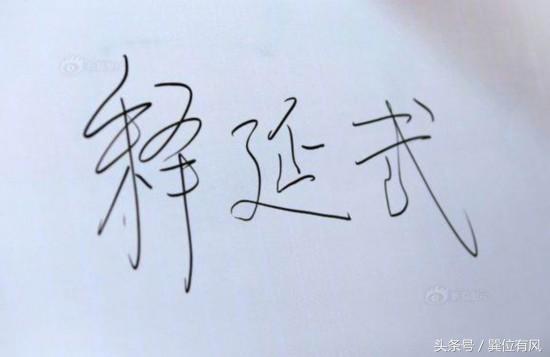 释延武
头条号 / 巽位有风